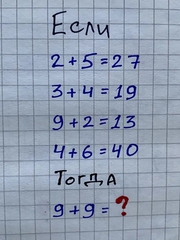 Если
2+5=27
3+4=19
9+2=13
4+6=40
Тогда
9+9=?